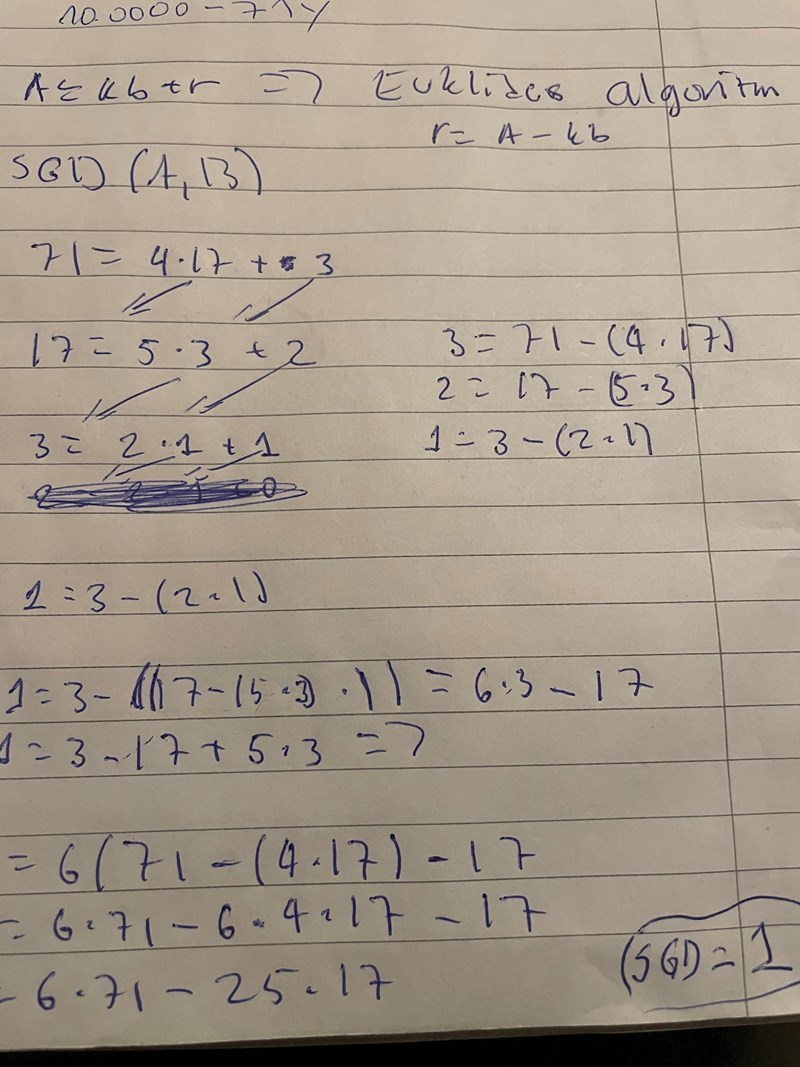 10.0000 - 71y
A = kb + r => Euklides algoritm
r = A - kb
SGD (A, B)
71 = 4·17 + 3
17 = 5·3 + 2
3 = 71 - (4·17)
2 = 17 - (5·3)
3 = 2·1 + 1
1 = 3 - (2·1)
1 = 3 - (2·1)
1 = 3 - ((17 - (5·3) · 1) = 6·3 - 17
1 = 3 - 17 + 5·3 =>
= 6(71 - (4·17) - 17
= 6·71 - 6·4·17 - 17
= 6·71 - 25·17
(SGD = 1